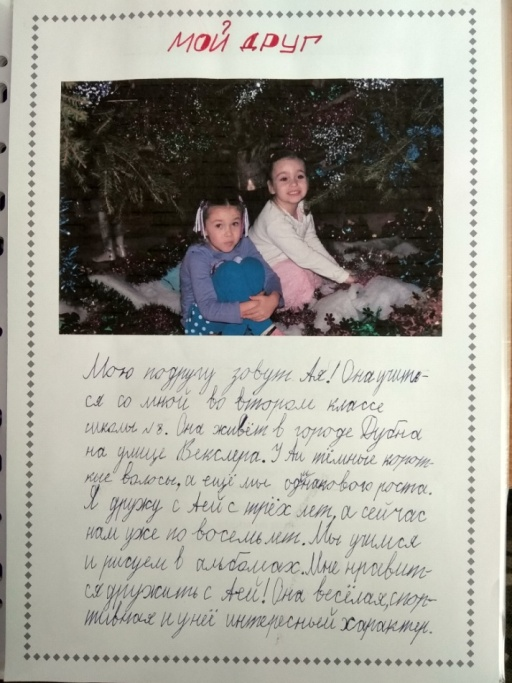 МОЙ ДРУГ
Мою подругу зовут Ая! Она учит-
ся со мной во втором классе
школы №8. Она живёт в городе Дубна
на улице Векслера. У Аи тёмные корот-
кие волосы, а ещё мы одинакового роста.
Я дружу с Аей с трёх лет, а сейчас
нам уже по восемь лет. Мы учимся
и рисуем в альбомах. Мне нравит-
ся дружить с Аей! Она весёлая, спор-
тивная и у неё интересный характер.